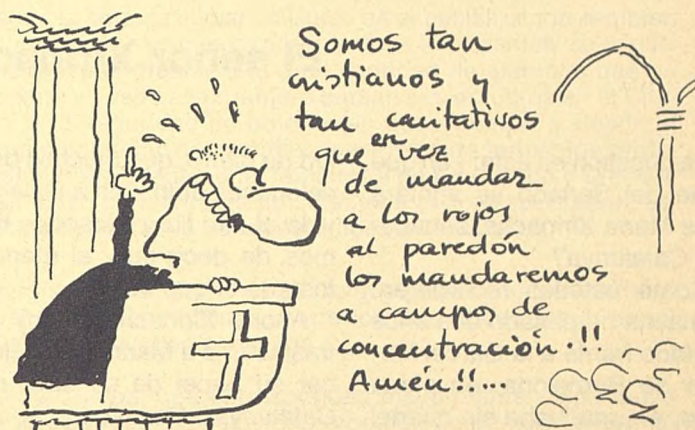 Somos tan
cristianos y
tan caritativos
que en vez
de mandar
a los rojos
al paredón
los mandaremos
a campos de
concentración!!
Amén!!...